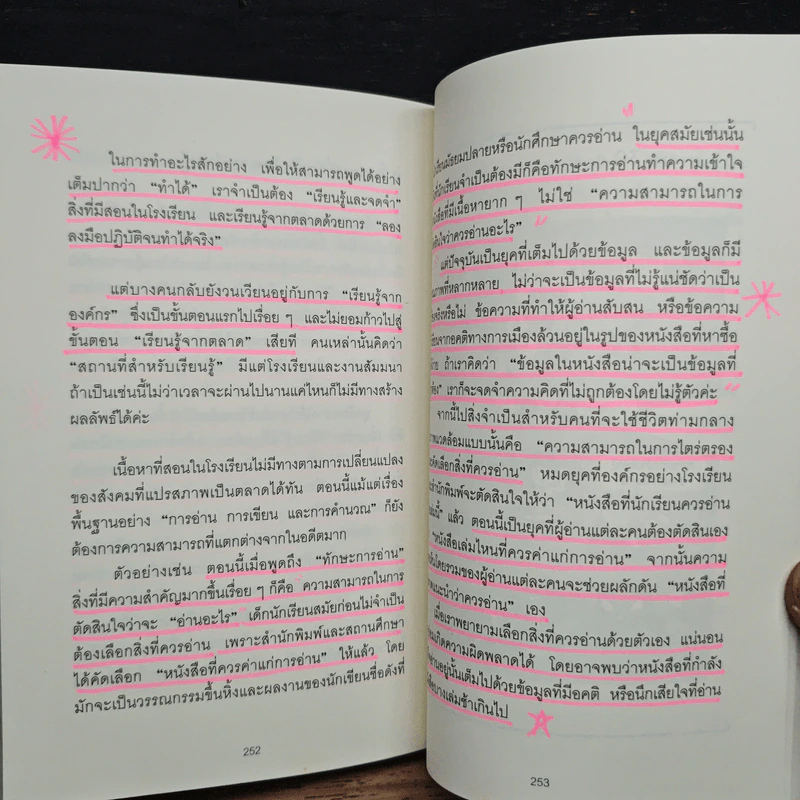 ในการทำอะไรสักอย่าง เพื่อให้สามารถพูดได้อย่าง
เต็มปากว่า “ทำได้” เราจำเป็นต้อง “เรียนรู้และจดจำ”
สิ่งที่มีสอนในโรงเรียน และเรียนรู้จากตลาดด้วยการ “ลอง
ลงมือปฏิบัติจนทำได้จริง”
แต่บางคนกลับยังวนเวียนอยู่กับการ “เรียนรู้จาก
องค์กร” ซึ่งเป็นขั้นตอนแรกไปเรื่อยๆ และไม่ยอมก้าวไปสู่
ขั้นตอน “เรียนรู้จากตลาด” เสียที คนเหล่านั้นคิดว่า
“สถานที่สำหรับเรียนรู้” มีแต่โรงเรียนและงานสัมมนา
ถ้าเป็นเช่นนี้ไม่ว่าเวลาจะผ่านไปนานแค่ไหนก็ไม่มีทางสร้าง
ผลลัพธ์ได้ค่ะ
เนื้อหาที่สอนในโรงเรียนไม่มีทางตามการเปลี่ยนแปลง
ของสังคมที่แปรสภาพเป็นตลาดได้ทัน ตอนนี้แม้แต่เรื่อง
พื้นฐานอย่าง “การอ่าน การเขียน และการคำนวณ” ก็ยัง
ต้องการความสามารถที่แตกต่างจากในอดีตมาก
ตัวอย่างเช่น ตอนนี้เมื่อพูดถึง “ทักษะการอ่าน”
สิ่งที่มีความสำคัญมากขึ้นเรื่อยๆ ก็คือ ความสามารถในการ
ตัดสินใจว่าจะ “อ่านอะไร” เด็กนักเรียนสมัยก่อนไม่จำเป็น
ต้องเลือกสิ่งที่ควรอ่าน เพราะสำนักพิมพ์และสถานศึกษา
ได้คัดเลือก “หนังสือที่ควรค่าแก่การอ่าน” ให้แล้ว โดย
มักจะเป็นวรรณกรรมขึ้นหิ้งและผลงานของนักเขียนชื่อดังที่
252
มัธยมปลายหรือนักศึกษาควรอ่าน ในยุคสมัยเช่นนั้น
นักเรียนจำเป็นต้องมีก็คือทักษะการอ่านทำความเข้าใจ
ที่มีเนื้อหายากๆ ไม่ใช่ “ความสามารถในการ
ว่าควรอ่านอะไร”
แต่ปัจจุบันเป็นยุคที่เต็มไปด้วยข้อมูล และข้อมูลก็มี
ที่หลากหลาย ไม่ว่าจะเป็นข้อมูลที่ไม่รู้แน่ชัดว่าเป็น
หรือไม่ ข้อความที่ทำให้ผู้อ่านสับสน หรือข้อความ
จากอคติทางการเมืองล้วนอยู่ในรูปของหนังสือที่หาซื้อ
ถ้าเราคิดว่า “ข้อมูลในหนังสือน่าจะเป็นข้อมูลที่
เราก็จะจดจำความคิดที่ไม่ถูกต้องโดยไม่รู้ตัวค่ะ
จากนี้ไปสิ่งจำเป็นสำหรับคนที่จะใช้ชีวิตท่ามกลาง
แวดล้อมแบบนั้นคือ “ความสามารถในการไตร่ตรอง
คัดเลือกสิ่งที่ควรอ่าน” หมดยุคที่องค์กรอย่างโรงเรียน
สำนักพิมพ์จะตัดสินใจให้ว่า “หนังสือที่นักเรียนควรอ่าน
แล้ว ตอนนี้เป็นยุคที่ผู้อ่านแต่ละคนต้องตัดสินเอง
หนังสือเล่มไหนที่ควรค่าแก่การอ่าน” จากนั้นความ
โดยรวมของผู้อ่านแต่ละคนจะช่วยผลักดัน “หนังสือที่
แนะนำว่าควรอ่าน” เอง
เมื่อเราพยายามเลือกสิ่งที่ควรอ่านด้วยตัวเอง แน่นอน
เกิดความผิดพลาดได้ โดยอาจพบว่าหนังสือที่กำลัง
อ่านอยู่นั้นเต็มไปด้วยข้อมูลที่มีอคติ หรือนึกเสียใจที่อ่าน
บางเล่มช้าเกินไป
253